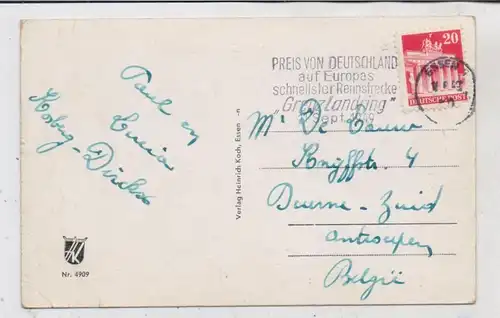 Paul en
Lucia
Verlag Heinrich Koch, Essen
HK
Nr. 4909
PREIS VON DEUTSCHLAND
auf Europas
schnellster Rennstrecke
"Grenzlandring"
Sept. 1949
20
DEUTSCHE POST
ESSEN
Mr De
4
Deurne - Zuid
Antwerpen
België